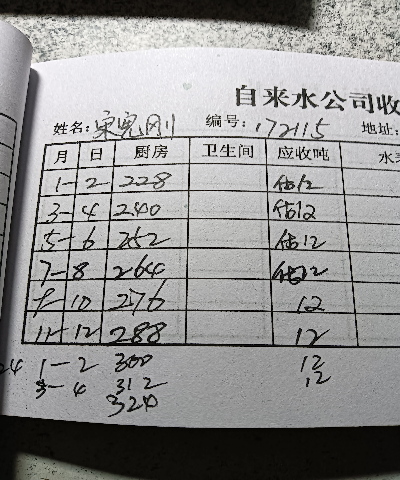 自来水公司收
姓名: 宋宪刚 编号: 172115 地址:
月 日 厨房 卫生间 应收吨
1-2 228 估12
3-4 240 估12
5-6 252 估12
7-8 264 估12
9-10 276 12
11-12 288 12
24 1-2 300 12
3-4 312 12
324